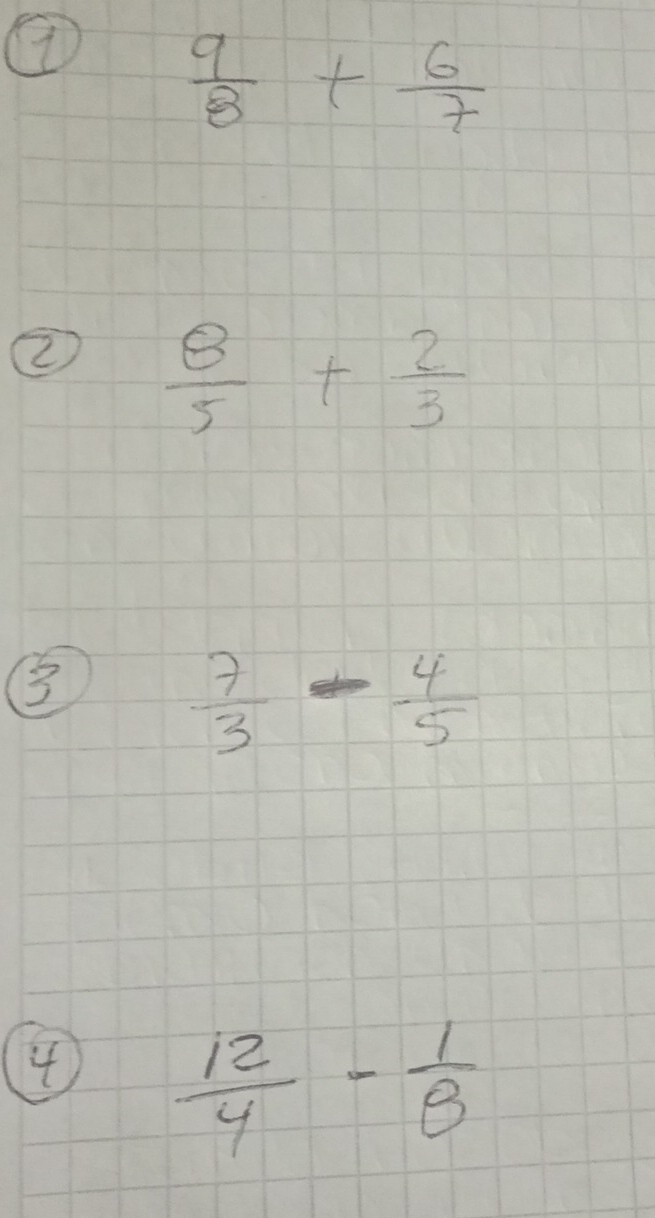 ① 9/8 + 6/7
② 8/5 + 2/3
③ 7/3 - 4/5
④ 12/4 - 1/8